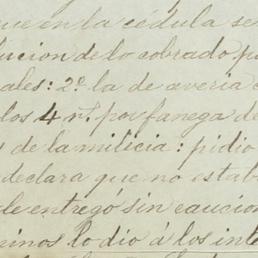 que en la cédula se
lucion de lo cobrado p
ales: 2º. la de averia
los 4 rs. por fanega de
de la milicia: pidio
declara que no estab
le entregó sin caucion
minos lo dio á los inte